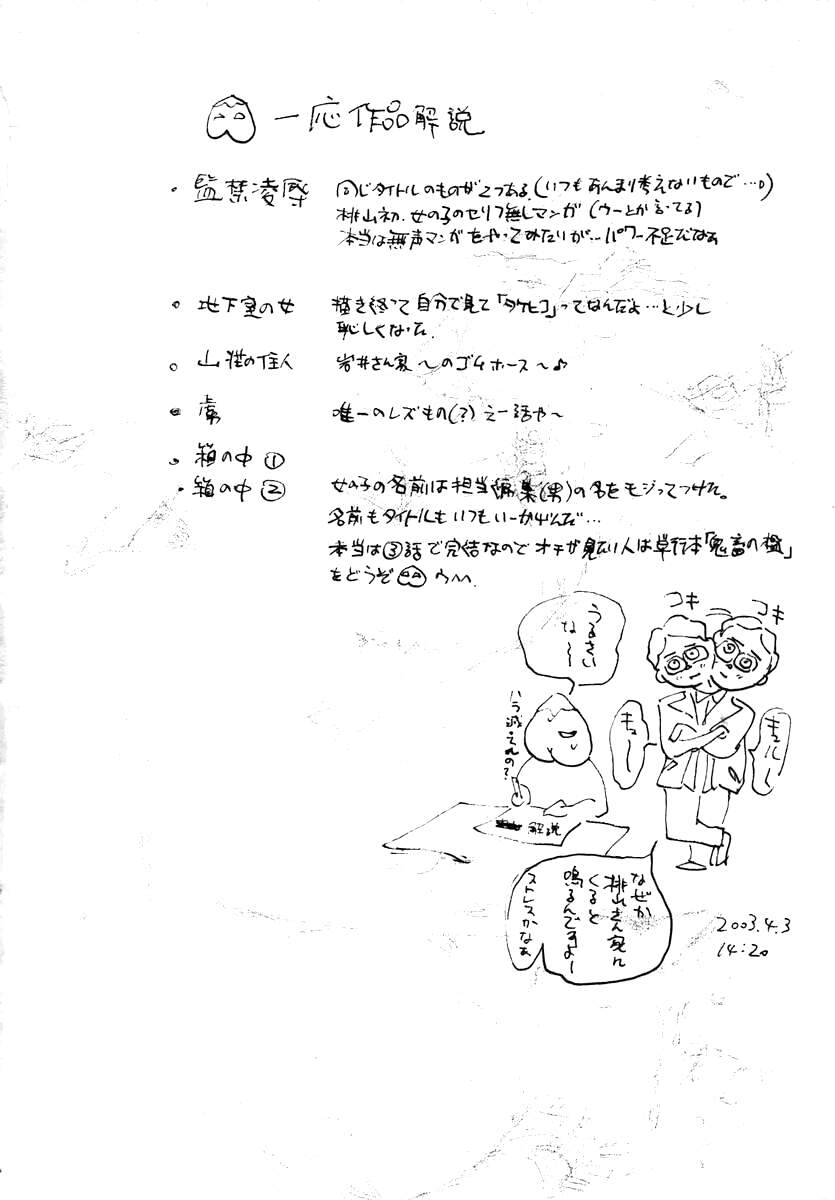 一応作品解説
・監禁凌辱 同じタイトルのものが2つある。(いつもあんまり考えないもので…。)
桃山初、女の子のセリフ無しマンガ(ウーとか言ってる)
本当は無声マンガをやってみたいが…パワー不足だなぁ
・地下室の女 描き終って自分で見て「タケヒコ」ってなんだよ…と少し
恥しくなった。
・山荘の住人 岩井さん家〜のゴムホース〜♪
・虜 唯一のレズもの(?)えー話や〜
・箱の中①
・箱の中② 女の子の名前は担当編集(男)の名をモジってつけた。
名前もタイトルもいつもいーかげんだ…
本当は③話で完結なのでオチが見たい人は単行本「鬼畜の檻」
をどうぞ
コキ
コキ
うるさい
な〜〜
ハラ減ってんの?
キュルル
キュー
解説
なぜか
桃山さん家に
くると
鳴るんですよー
ストレスかなぁ
2003.4.3
14:20